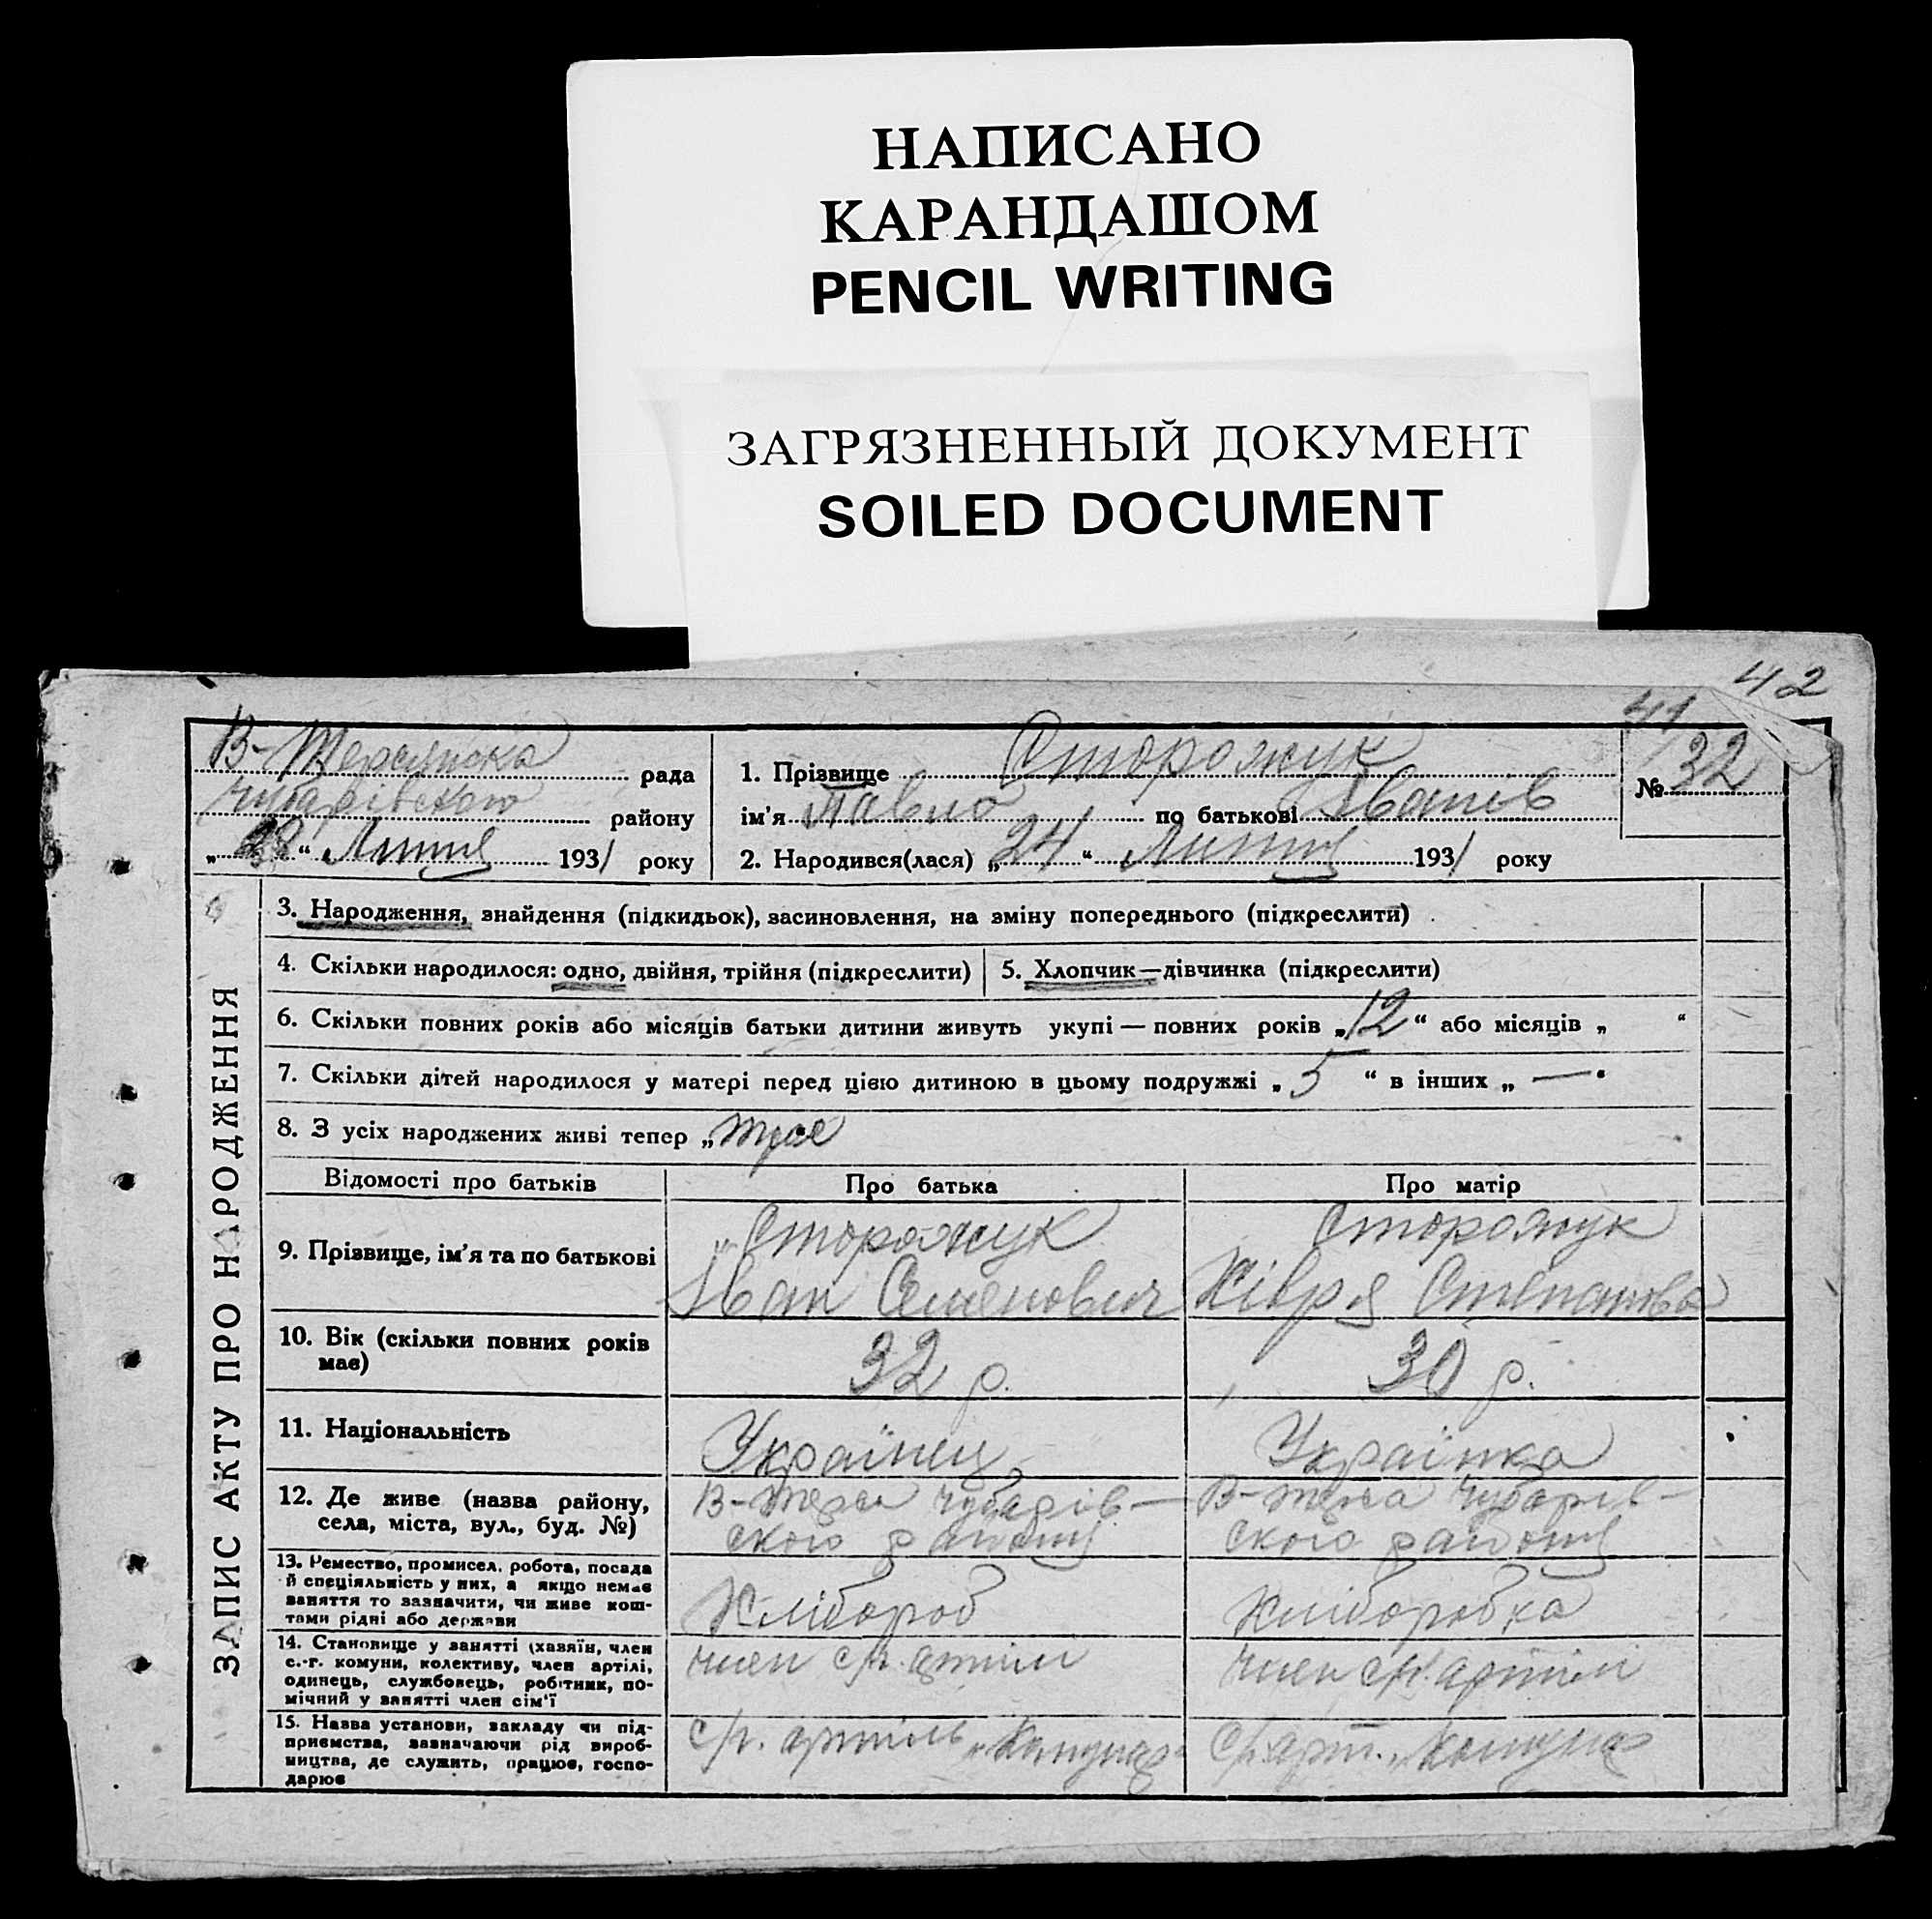 НАПИСАНО
КАРАНДАШОМ
PENCIL WRITING
ЗАГРЯЗНЕННЫЙ ДОКУМЕНТ
SOILED DOCUMENT
42
41
В-Терсянська рада
Чубарівского району
„28“ Липня 1931 року
1. Прізвище Сторожук
ім'я Павло по батькові Іванів
№ 32
2. Народився(лася) „24“ Липня 1931 року
ЗАПИС АКТУ ПРО НАРОДЖЕННЯ
3. Народження, знайдення (підкидьок), засиновлення, на зміну попереднього (підкреслити)
4. Скільки народилося: одно, двійня, трійня (підкреслити)
5. Хлопчик—дівчинка (підкреслити)
6. Скільки повних років або місяців батьки дитини живуть укупі — повних років „12“ або місяців „ “
7. Скільки дітей народилося у матері перед цією дитиною в цьому подружжі „5“ в інших „—“
8. З усіх народжених живі тепер „троє
Відомості про батьків
Про батька
Про матір
9. Прізвище, ім'я та по батькові
Сторожук
Іван Семенович
Сторожук
Хівря Степанова
10. Вік (скільки повних років
має)
32 р.
30 р.
11. Національність
Українец
Українка
12. Де живе (назва району,
села, міста, вул., буд. №)
В-Терса Чубарів-
ского району
В-Терса Чубарів-
ского району
13. Ремество, промисел, робота, посада
й спеціяльність у них, а якщо немає
заняття то зазначити, чи живе кош-
тами рідні або держави
Хлібороб
Хліборобка
14. Становище у занятті (хазяїн, член
с.-г. комуни, колективу, член артілі,
одинець, службовець, робітник, по-
мічний у занятті член сім'ї
член с/г. артілі
член с/г. артілі
15. Назва установи, закладу чи під-
приємства, зазначаючи рід вироб-
ництва, де служить, працює, госпо-
дарює
с/г. артіль „Комунар“
с/г арт. „Комунар